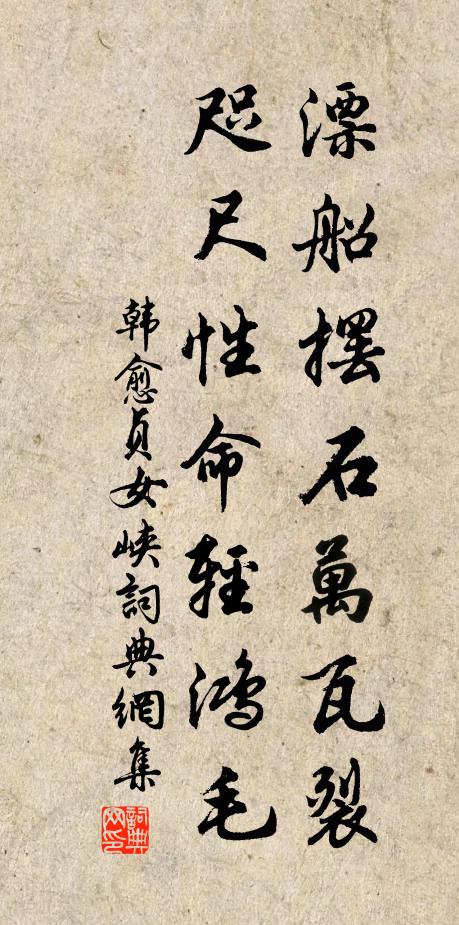 漂船擺石萬瓦裂
咫尺性命輕鴻毛
韩愈貞女峽詞典網集
詞典網印